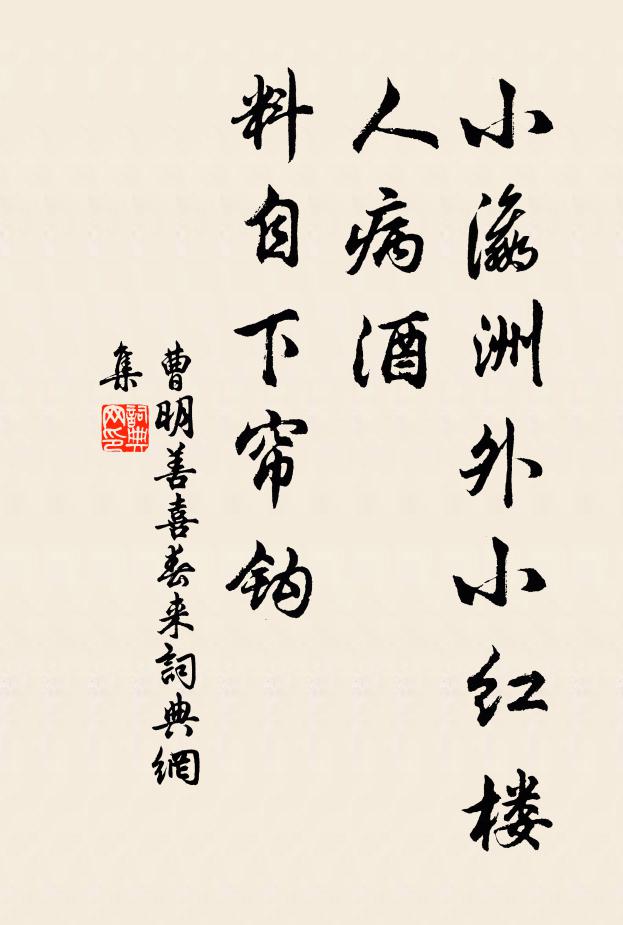 小瀛洲外小红楼
人病酒
料自下帘钩
曹明善喜春来詞典網
集
詞典
网印